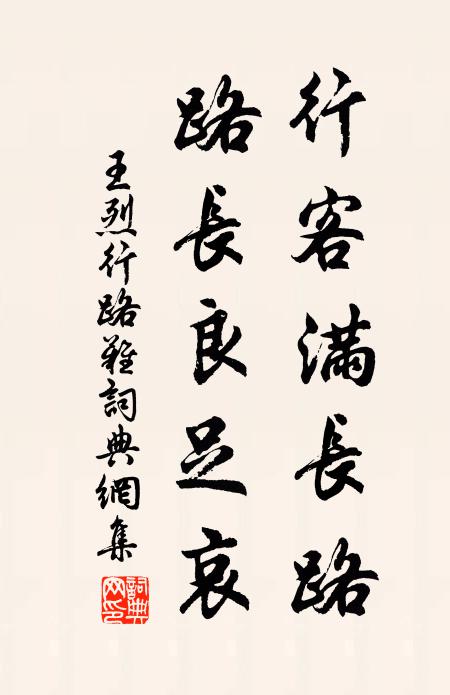 行客滿長路
路長良足哀
王烈行路難詞典網集
詞典網印